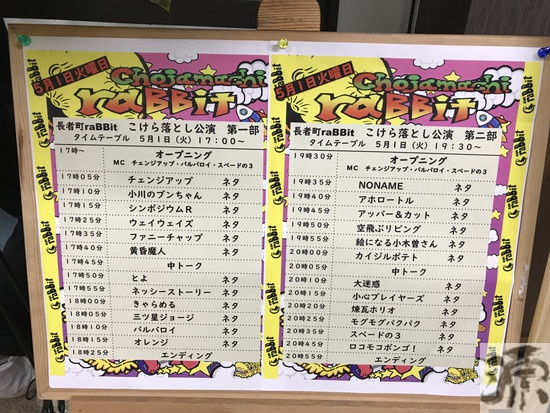 5月1日火曜日
Chojamachi
raBBit
長者町raBBit こけら落とし公演 第一部
タイムテーブル 5月1日(火) 17:00〜
17時〜 オープニング
MC チェンジアップ・バルバロイ・スペードの3
17時05分 チェンジアップ ネタ
17時10分 小川のブンちゃん ネタ
17時15分 シンポジウムR ネタ
17時25分 ウェイウェイズ ネタ
17時35分 ファニーチャップ ネタ
17時40分 黄昏魔人 ネタ
17時45分 中トーク
17時50分 とよ ネタ
17時55分 ネッシーストーリー ネタ
18時00分 きゃらめる ネタ
18時10分 三ツ星ジョージ ネタ
18時10分 バルバロイ ネタ
18時15分 オレンジ ネタ
18時25分 エンディング
5月1日火曜日
Chojamachi
raBBit
長者町raBBit こけら落とし公演 第二部
タイムテーブル 5月1日(火) 19:30〜
19時30分 オープニング
MC チェンジアップ・バルバロイ・スペードの3
19時35分 NONAME ネタ
19時40分 アホロートル ネタ
19時45分 アッパー&カット ネタ
19時50分 空飛ぶリビング ネタ
19時55分 絵になる小木曽さん ネタ
20時00分 カイジルポテト ネタ
20時05分 中トーク
20時10分 大迷惑 ネタ
20時15分 小心プレイヤーズ ネタ
20時20分 煉瓦ホリオ ネタ
20時30分 モグモグパクパク ネタ
20時35分 スペードの3 ネタ
20時45分 ロコモコボンゴ! ネタ
20時55分 エンディング